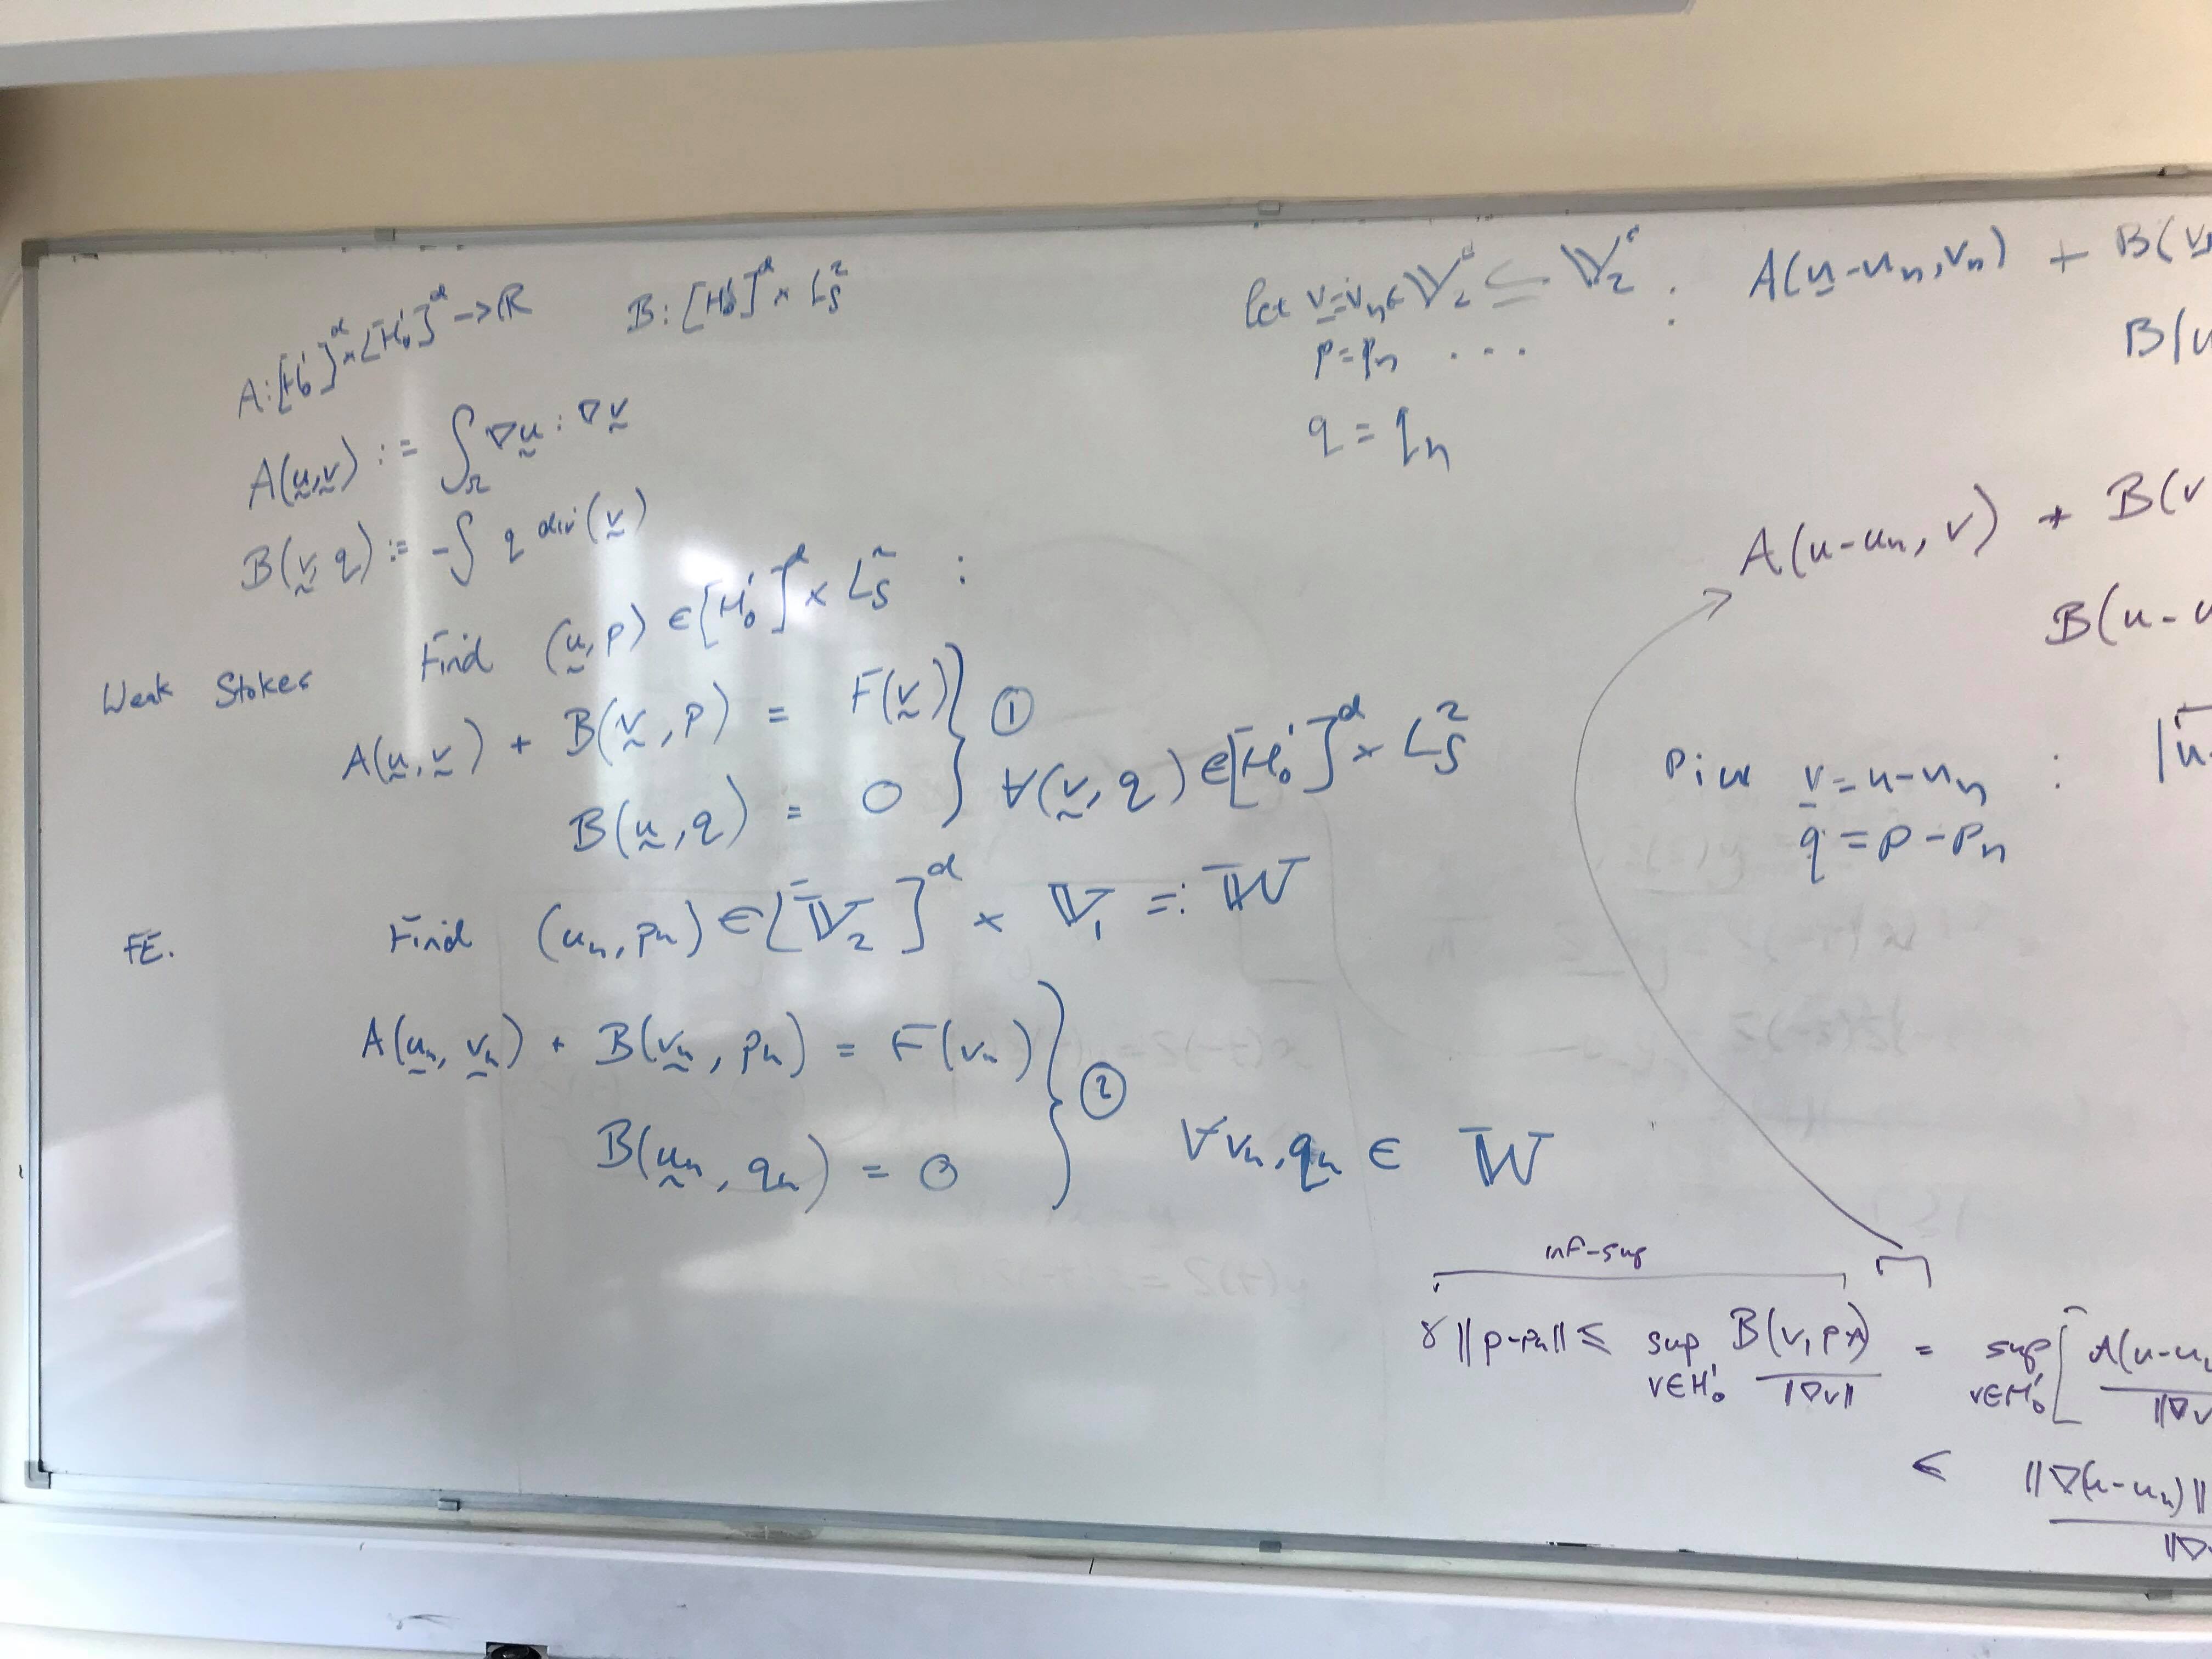 A: [H₀¹]ᵈ × [H₀¹]ᵈ → ℝ B: [H₀¹]ᵈ × L²_S
A(u,v) := ∫_Ω ∇u : ∇v
B(v, q) := -∫ q div(v)
Weak Stokes Find (u, p) ∈ [H₀¹]ᵈ × L²_S :
A(u, v) + B(v, p) = F(v) } ①
B(u, q) = 0 ∀(v, q) ∈ [H₀¹]ᵈ × L²_S
FE. Find (uₕ, pₕ) ∈ [𝕍₂]ᵈ × 𝕍₁ =: 𝕎
A(uₕ, vₕ) + B(vₕ, pₕ) = F(vₕ) } ②
B(uₕ, qₕ) = 0 ∀ vₕ, qₕ ∈ 𝕎
let v = vₕ ∈ 𝕍₂ ⊆ 𝕍₂ : A(u - uₕ, vₕ) + B(v
p = pₕ ... B(u
q = qₕ
A(u - uₕ, v) + B(v
B(u - u
v = u - uₕ : |u-
q = p - pₕ
inf-sup
γ ||p - pₕ|| ≤ sup_{v∈H₀¹} B(v, p) / ||∇v|| = sup_{v∈H₀¹} [ A(u - uₕ / ||∇v
≤ ||∇(u - uₕ)|| / ||∇